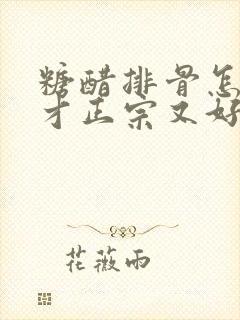 糖醋排骨怎
才正宗又好
花薇雨